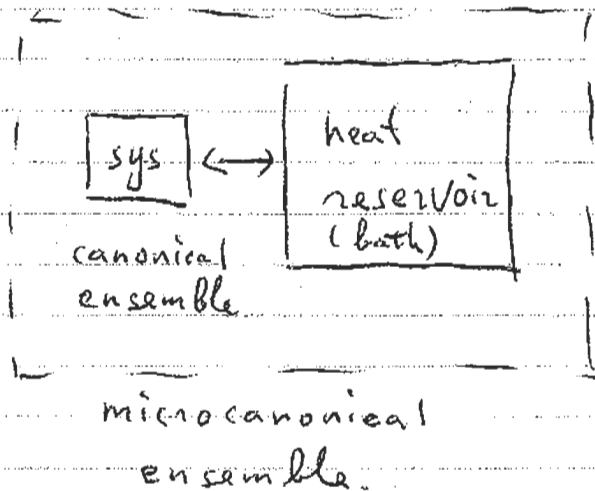 sys
heat
reservoir
(bath)
canonical
ensemble
microcanonical
ensemble.